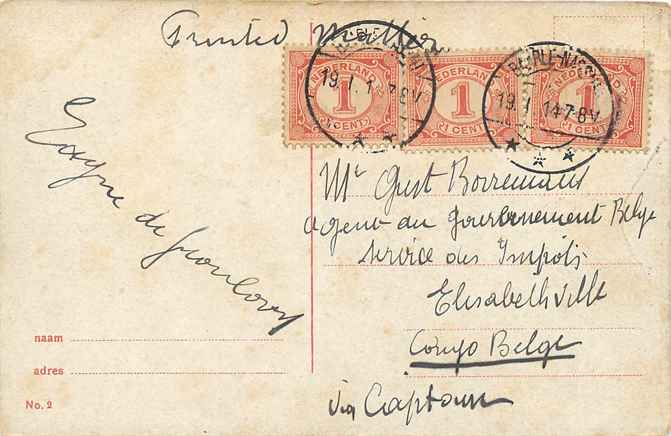 Printed Matter
NEDERLAND
1
(1 CENT)
NEDERLAND
1
(1 CENT)
NEDERLAND
1
(1 CENT)
19.1.14 7-8V
BAARLE-NASSAU
19.1.14 7-8V
Mr Gust Borremans
agent du Gouvernement Belge
Service des Impôts
Elisabethville
Congo Belge
via Captown
naam
adres
No. 2